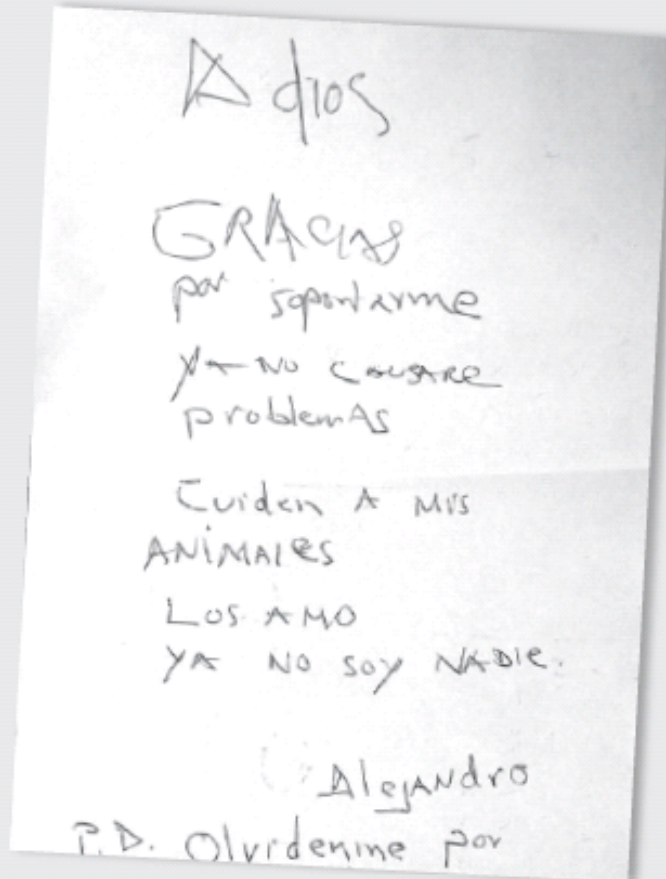 Adios
GRACIAS
por soportarme
YA NO CAUSARE
problemAS
Cuiden A MIS
ANiMAles
LOS AMO
YA NO SOY NADIe.
AlejANdro
P.D. Olvidenme por